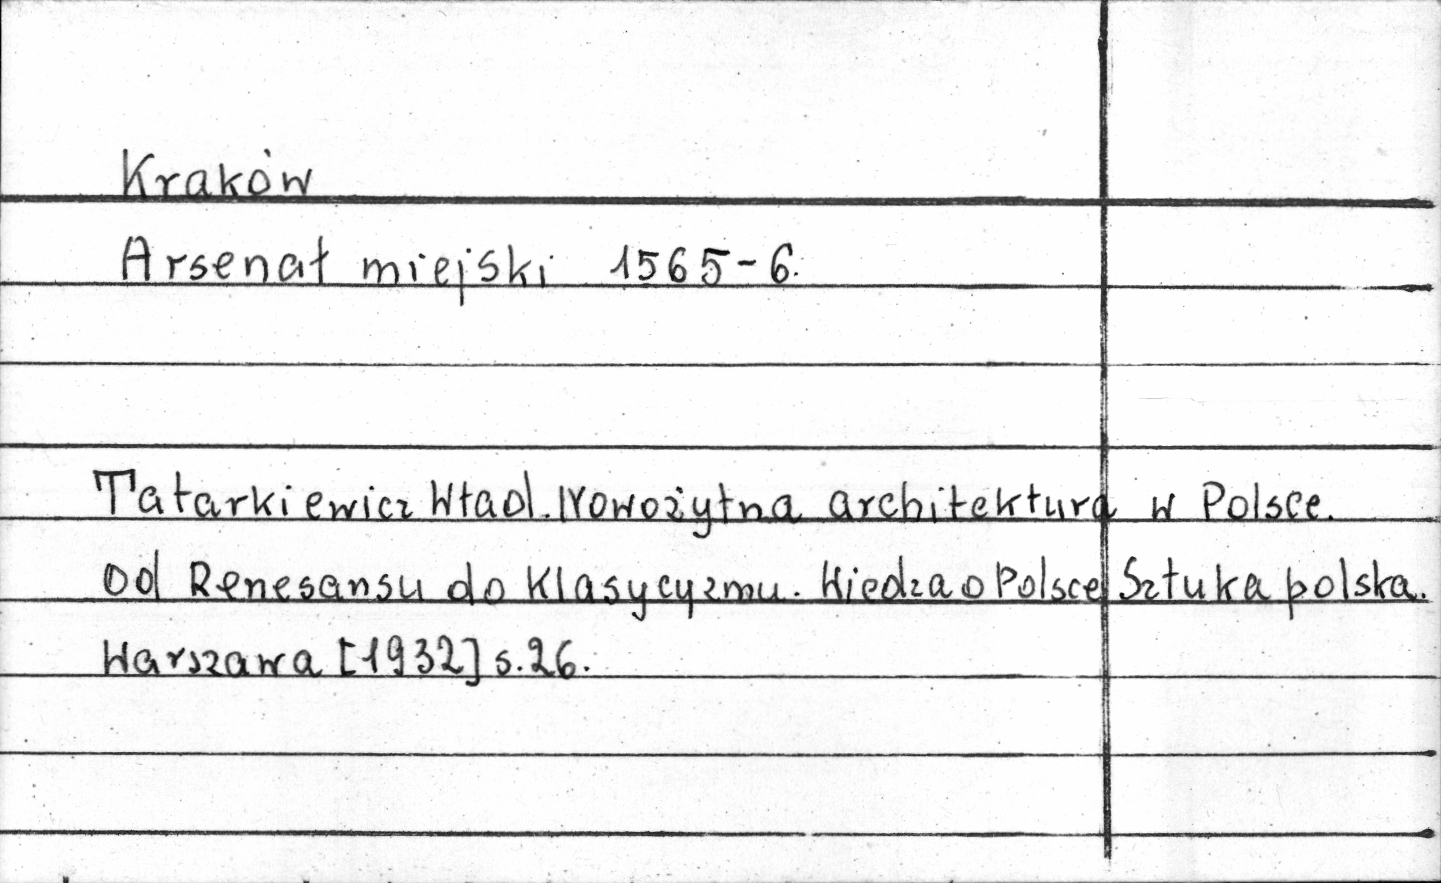 Kraków
Arsenał miejski 1565-6.
Tatarkiewicz Wład. Nowożytna architektura w Polsce.
Od Renesansu do Klasycyzmu. Wiedza o Polsce Sztuka polska.
Warszawa [1932] s.26.